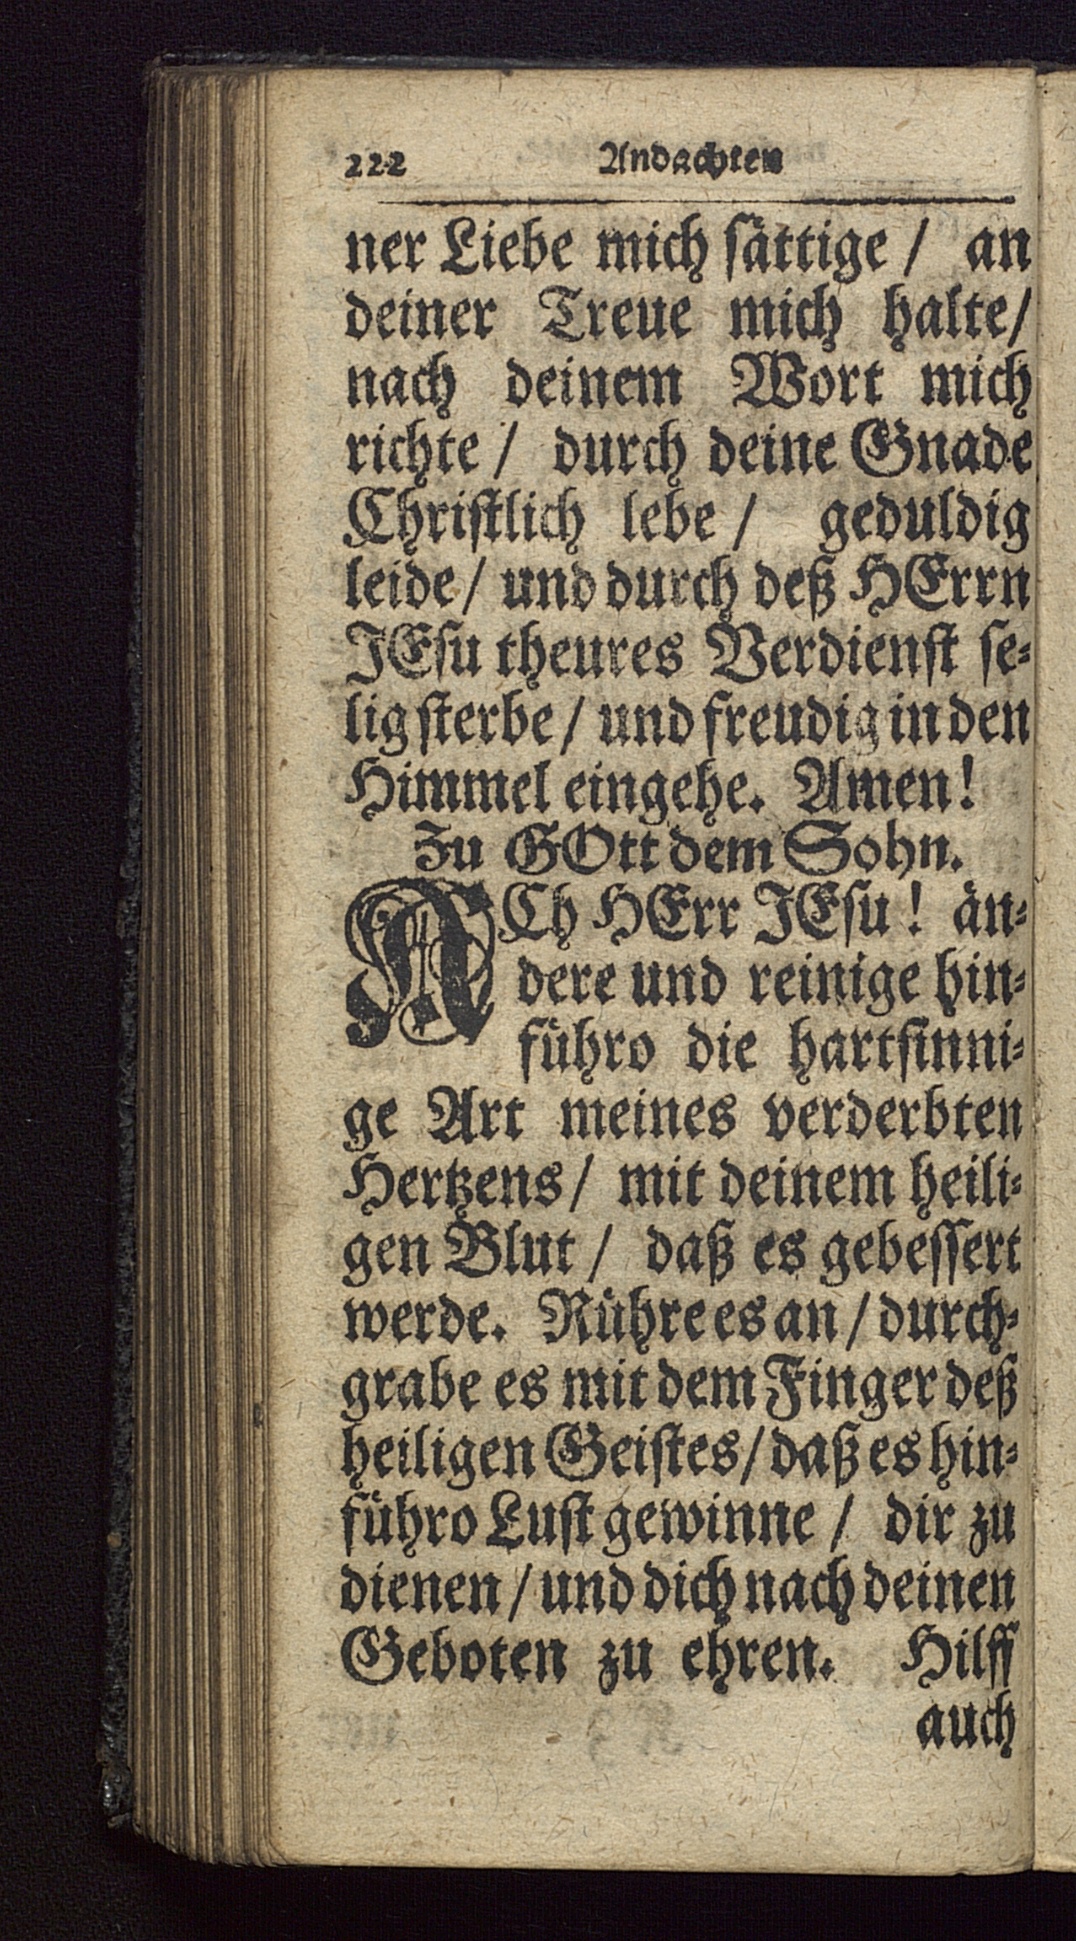 222 Andachten
ner Liebe mich sättige / an
deiner Treue mich halte/
nach deinem Wort mich
richte / durch deine Gnade
Christlich lebe / geduldig
leide / und durch deß HErrn
JEsu theures Verdienst se-
lig sterbe / und freudig in den
Himmel eingehe. Amen!
Zu GOtt dem Sohn.
ACh HErr JEsu! än-
dere und reinige hin-
führo die hartsinni-
ge Art meines verderbten
Hertzens / mit deinem heili-
gen Blut / daß es gebessert
werde. Rühre es an / durch-
grabe es mit dem Finger deß
heiligen Geistes / daß es hin-
führo Lust gewinne / dir zu
dienen / und dich nach deinen
Geboten zu ehren. Hilff
auch